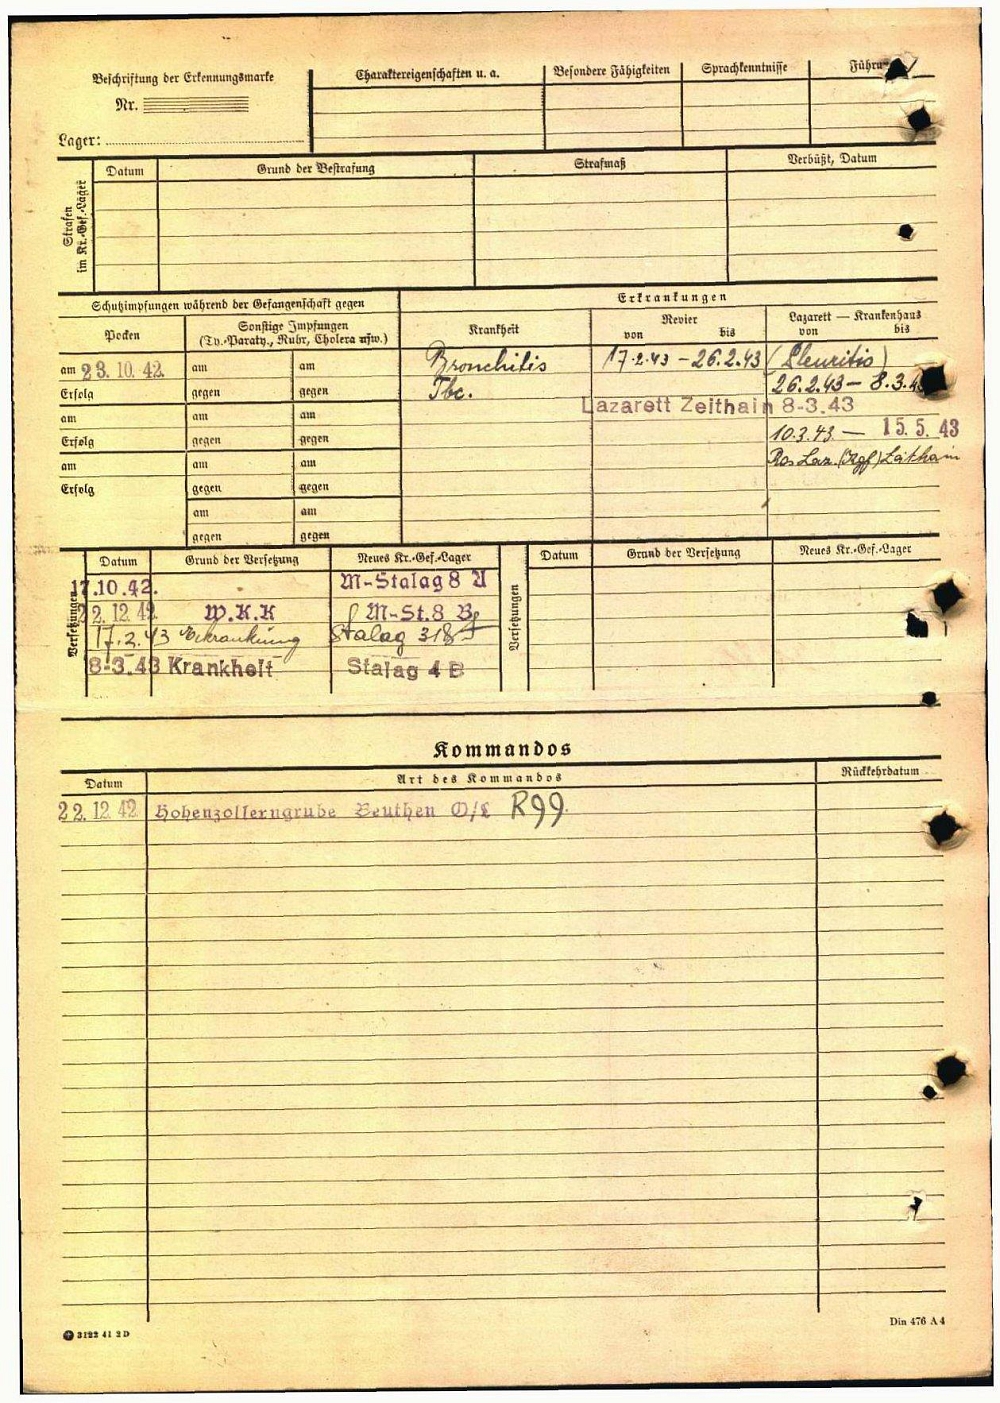 Beschriftung der Erkennungsmarke
Nr.
Lager:
Charaktereigenschaften u. a.
Besondere Fähigkeiten
Sprachkenntnisse
Strafen im Kr.-Gef.-Lager
Datum
Grund der Bestrafung
Strafmaß
Verbüßt, Datum
Schutzimpfungen während der Gefangenschaft gegen
Erkrankungen
Pocken
Sonstige Impfungen
(Ty.-Paraty., Ruhr, Cholera usw.)
Krankheit
Revier
von bis
Lazarett — Krankenhaus
von bis
am 23.10.42. am am
Bronchitis 17.2.43 – 26.2.43 (Pleuritis)
Erfolg gegen gegen
Tbc. 26.2.43 – 8.3.
Lazarett Zeithain 8-3.43
am am am
Erfolg gegen gegen
10.3.43. — 15.5.43
am am am
Erfolg gegen gegen
am am
gegen gegen
Versetzungen
Datum Grund der Versetzung Neues Kr.-Gef.-Lager
17.10.42. M-Stalag 8
22.12.42. W.K.K M-St. 8 B
17.2.43 Erkrankung Stalag 318
8-3.43 Krankheit Stalag 4 B
Versetzungen
Datum Grund der Versetzung Neues Kr.-Gef.-Lager
Kommandos
Datum Art des Kommandos Rückkehrdatum
22.12.42. Hohenzollerngrube Beuthen O/S R99
3122 41 2 D
Din 476 A 4